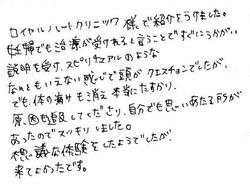 ロイヤルハートクリニック様で紹介をうけました。
妊婦でも治療が受けれると言うことですごいうれがい
説明を受け、スピリチュアルのような
なんともいえない感じで頭がクエスチョンでしたが、
でも、体の痛みも消え本当にたすかり、
原因も追及してくださり、自分でも思いあたる所が
あったのでスッキリしました。
不思議な体験をしたようでしたが
来てよかったです。